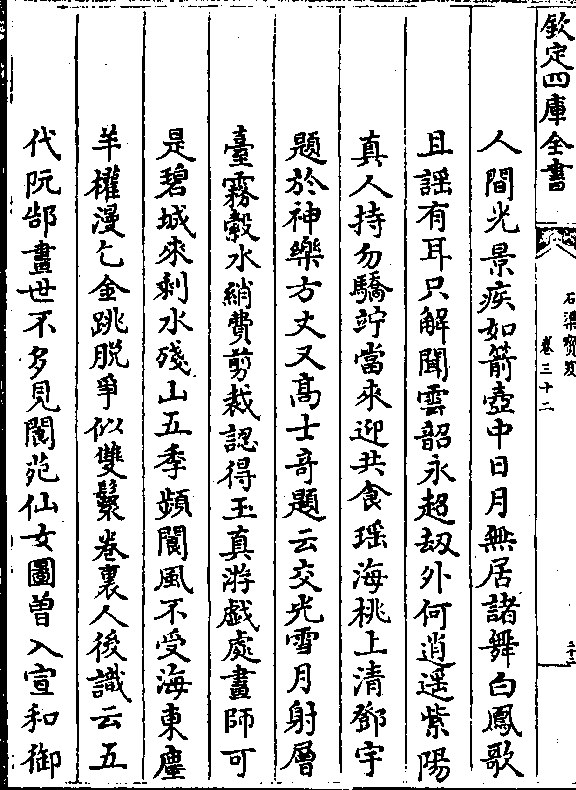 欽定四庫全書
石渠寳笈
卷三十二
三十二
人間光景疾如箭壺中日月無居諸舞白鳳歌
且謡有耳只解聞雲韶永超刼外何逍遥紫陽
真人持勿驕竚當來迎共食瑶海桃上清鄧宇
題於神樂方丈又髙士竒題云交光雪月射層
臺霧縠水綃費剪裁認得玉真游戯處畫師可
是碧城來剰水殘山五季頻閬風不受海東塵
羊權漫乞金跳脱爭似雙鬟卷裏人後識云五
代阮郜畫世不多見閬苑仙女圖曽入宣和御